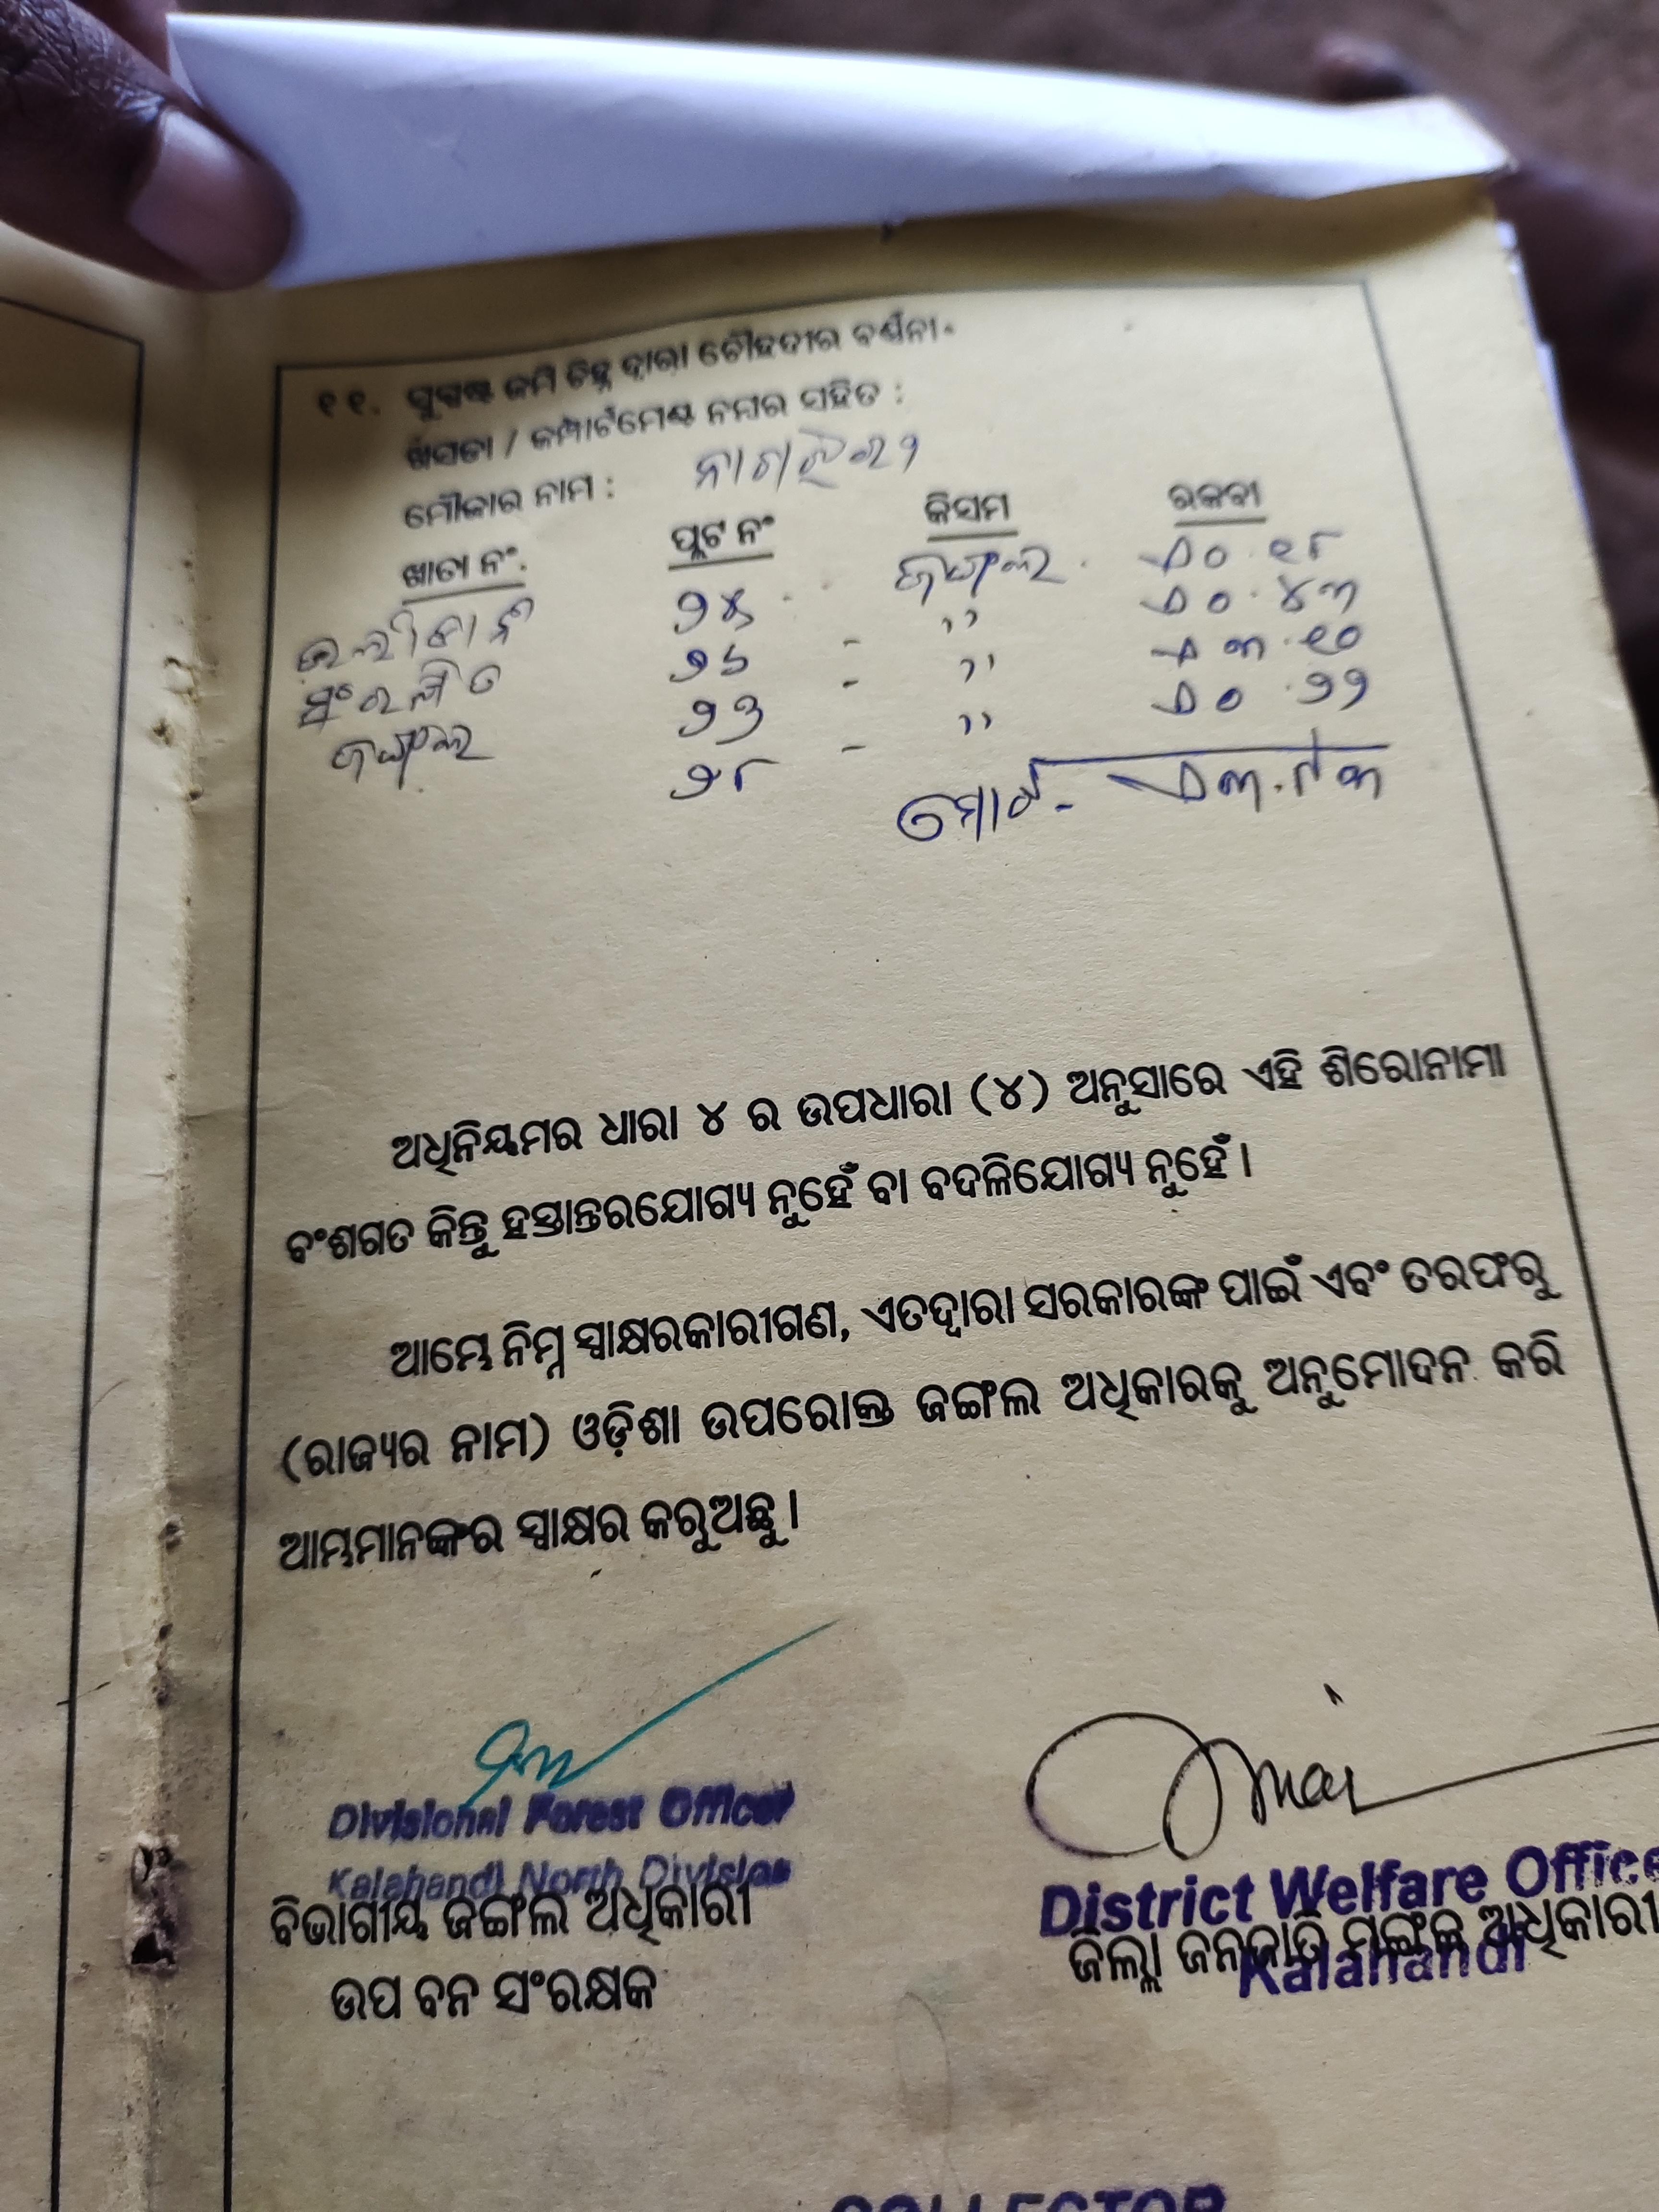 ୧୧. ସୁସ୍ପଷ୍ଟ ଜମି ଚିହ୍ନ ଦ୍ୱାରା ଚୌହଦୀର ବର୍ଣ୍ଣନା-
ଖସଡା / କମ୍ପାର୍ଟମେଣ୍ଟ ନମ୍ବର ସହିତ :
ମୌଜାର ନାମ :
ଖାତା ନଂ. ପ୍ଲଟ ନଂ କିସମ ରକବା
୨୫ ଜଙ୍ଗଲ ଏ୦.୧୮
୨୬ - ,, ଏ୦.୪୩
ସଂରକ୍ଷିତ ୨୭ - ,, ଏ୩.୧୦
ଜଙ୍ଗଲ ୨୮ - ,, ଏ୦.୨୨
ମୋଟ- ଏ୩.୯୩
ଅଧିନିୟମର ଧାରା ୪ ର ଉପଧାରା (୪) ଅନୁସାରେ ଏହି ଶିରୋନାମା
ବଂଶଗତ କିନ୍ତୁ ହସ୍ତାନ୍ତରଯୋଗ୍ୟ ନୁହେଁ ବା ବଦଳିଯୋଗ୍ୟ ନୁହେଁ ।
ଆମ୍ଭେ ନିମ୍ନ ସ୍ୱାକ୍ଷରକାରୀଗଣ, ଏତଦ୍ୱାରା ସରକାରଙ୍କ ପାଇଁ ଏବଂ ତରଫରୁ
(ରାଜ୍ୟର ନାମ) ଓଡ଼ିଶା ଉପରୋକ୍ତ ଜଙ୍ଗଲ ଅଧିକାରକୁ ଅନୁମୋଦନ କରି
ଆମ୍ଭମାନଙ୍କର ସ୍ୱାକ୍ଷର କରୁଅଛୁ ।
Divisional Forest Officer
Kalahandi North Division
ବିଭାଗୀୟ ଜଙ୍ଗଲ ଅଧିକାରୀ
ଉପ ବନ ସଂରକ୍ଷକ
District Welfare Office
ଜିଲ୍ଲା ଜନଜାତି ମଙ୍ଗଳ ଅଧିକାରୀ
Kalahandi
COLLECTOR